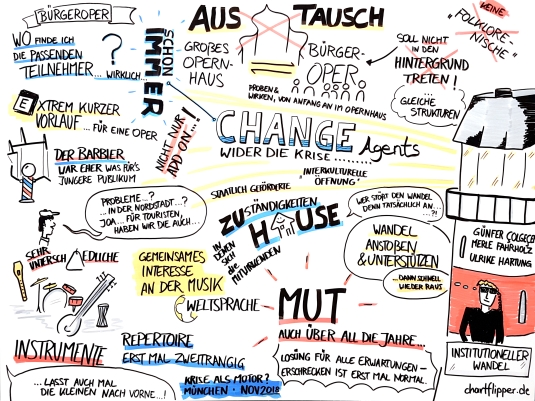 BÜRGEROPER
WO FINDE ICH
DIE PASSENDEN
TEILNEHMER... WIRKLICH...
?
SCHON
IMMER
EXTREM KURZER
VORLAUF ... FÜR EINE OPER
NICHT NUR
ADD ON...!
DER BARBIER
WAR EHER WAS FÜR'S
JÜNGERE PUBLIKUM
PROBLEME...?
...IN DER NORDSTADT...?
JOA... FÜR TOURISTEN,
HABEN WIR DIE AUCH...
SEHR
UNTERSCHIEDLICHE
INSTRUMENTE
... LASST AUCH MAL
DIE KLEINEN NACH VORNE...!
AUSTAUSCH
GROẞES
OPERN-
HAUS
BÜRGER-
OPER
PROBEN &
WIRKEN, VON ANFANG AN IM OPERNHAUS
CHANGE Agents
WIDER DIE KRISE.........
"INTERKULTURELLE
ÖFFNUNG"
STAATLICH GEFÖRDERTE
ZUSTÄNDIGKEITEN
HAUSE
IN
DENEN
SICH
die
MITWIRKENDEN
GEMEINSAMES
INTERESSE
AN DER MUSIK
WELTSPRACHE
REPERTOIRE
ERST MAL ZWEITRANGIG
KRISE ALS MOTOR?
MÜNCHEN • NOV 2018
MUT
AUCH ÜBER ALL DIE JAHRE...
LOSUNG FÜR ALLE ERWARTUNGEN-
ERSCHRECKEN IST ERST MAL NORMAL.
KEINE
"FOLKLORE-
NISCHE"
SOLL NICHT
IN DEN
HINTERGRUND
TRETEN!
...
GLEICHE
STRUKTUREN
WER STÖRT DEN WANDEL
DENN TATSÄCHLICH AN...
...?!
WANDEL
ANSTOẞEN
& UNTERSTÜTZEN
... DANN SCHNELL
WIEDER RAUS
MERLE FAHRHOLZ
ULRIKE HARTUNG
INSTITUTIONELLER
WANDEL
chartflipper.de